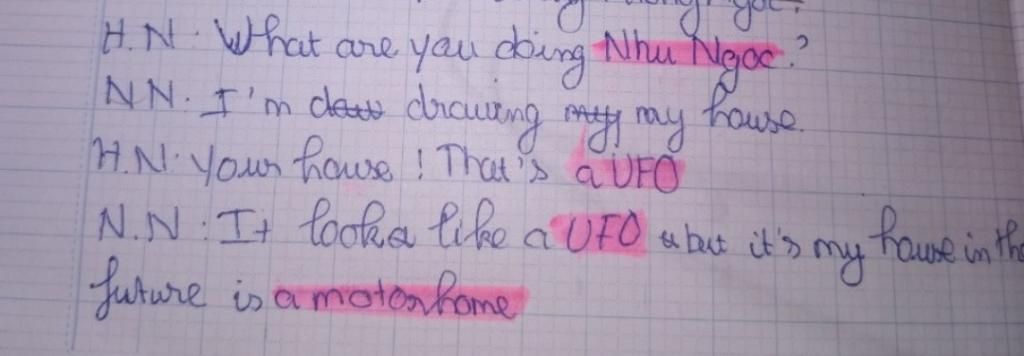 H.N: What are you doing Nhu Ngoc?
NN: I'm drawing my house.
H.N: Your house! That's a UFO
N.N: It looks like a UFO but it's my house in the
future is a motorhome